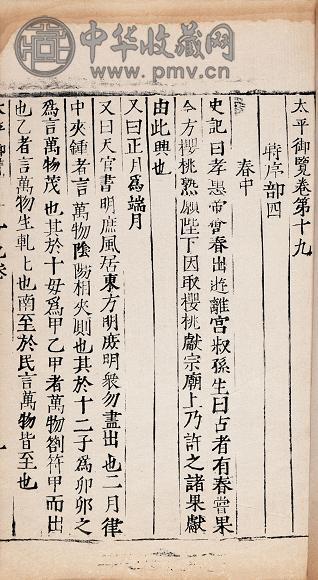 中华收藏网
www.pmv.cn
太平御覽卷第十九
時序部四
春中
史記曰孝惠帝嘗春出遊離宮叔孫生曰古者有春嘗果
今方櫻桃熟願陛下因取櫻桃獻宗廟上乃許之諸果獻
由此興也
又曰正月爲端月
又曰天官書明庶風居東方明庶明衆物盡出也二月律
中夾鍾者言萬物陰陽相夾則也其於十二子爲卯卯之
爲言萬物茂也其於十母爲甲乙甲者萬物剖符甲而出
也乙者言萬物生軋上也南至於氐言萬物皆至也